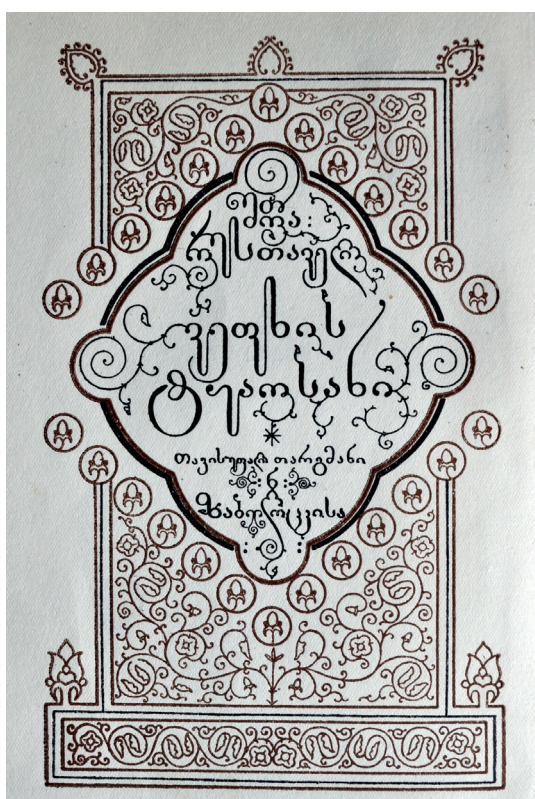 შოთა:
რუსთაველი
ვეფხის
ტყაოსანი
თავისუფალი თარგმანი
: ნ :
ზაბოლოცკისა